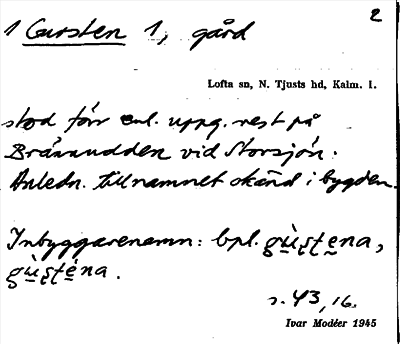 2
1 Gursten 1, gård
Lofta sn, N. Tjusts hd, Kalm. l.
stod förr enl. uppg. rest på
Brännudden vid Storsjön.
Anledn. till namnet okänd i bygden.
Inbyggarenamn: bpl.
s. 43, 16.
Ivar Modéer 1945